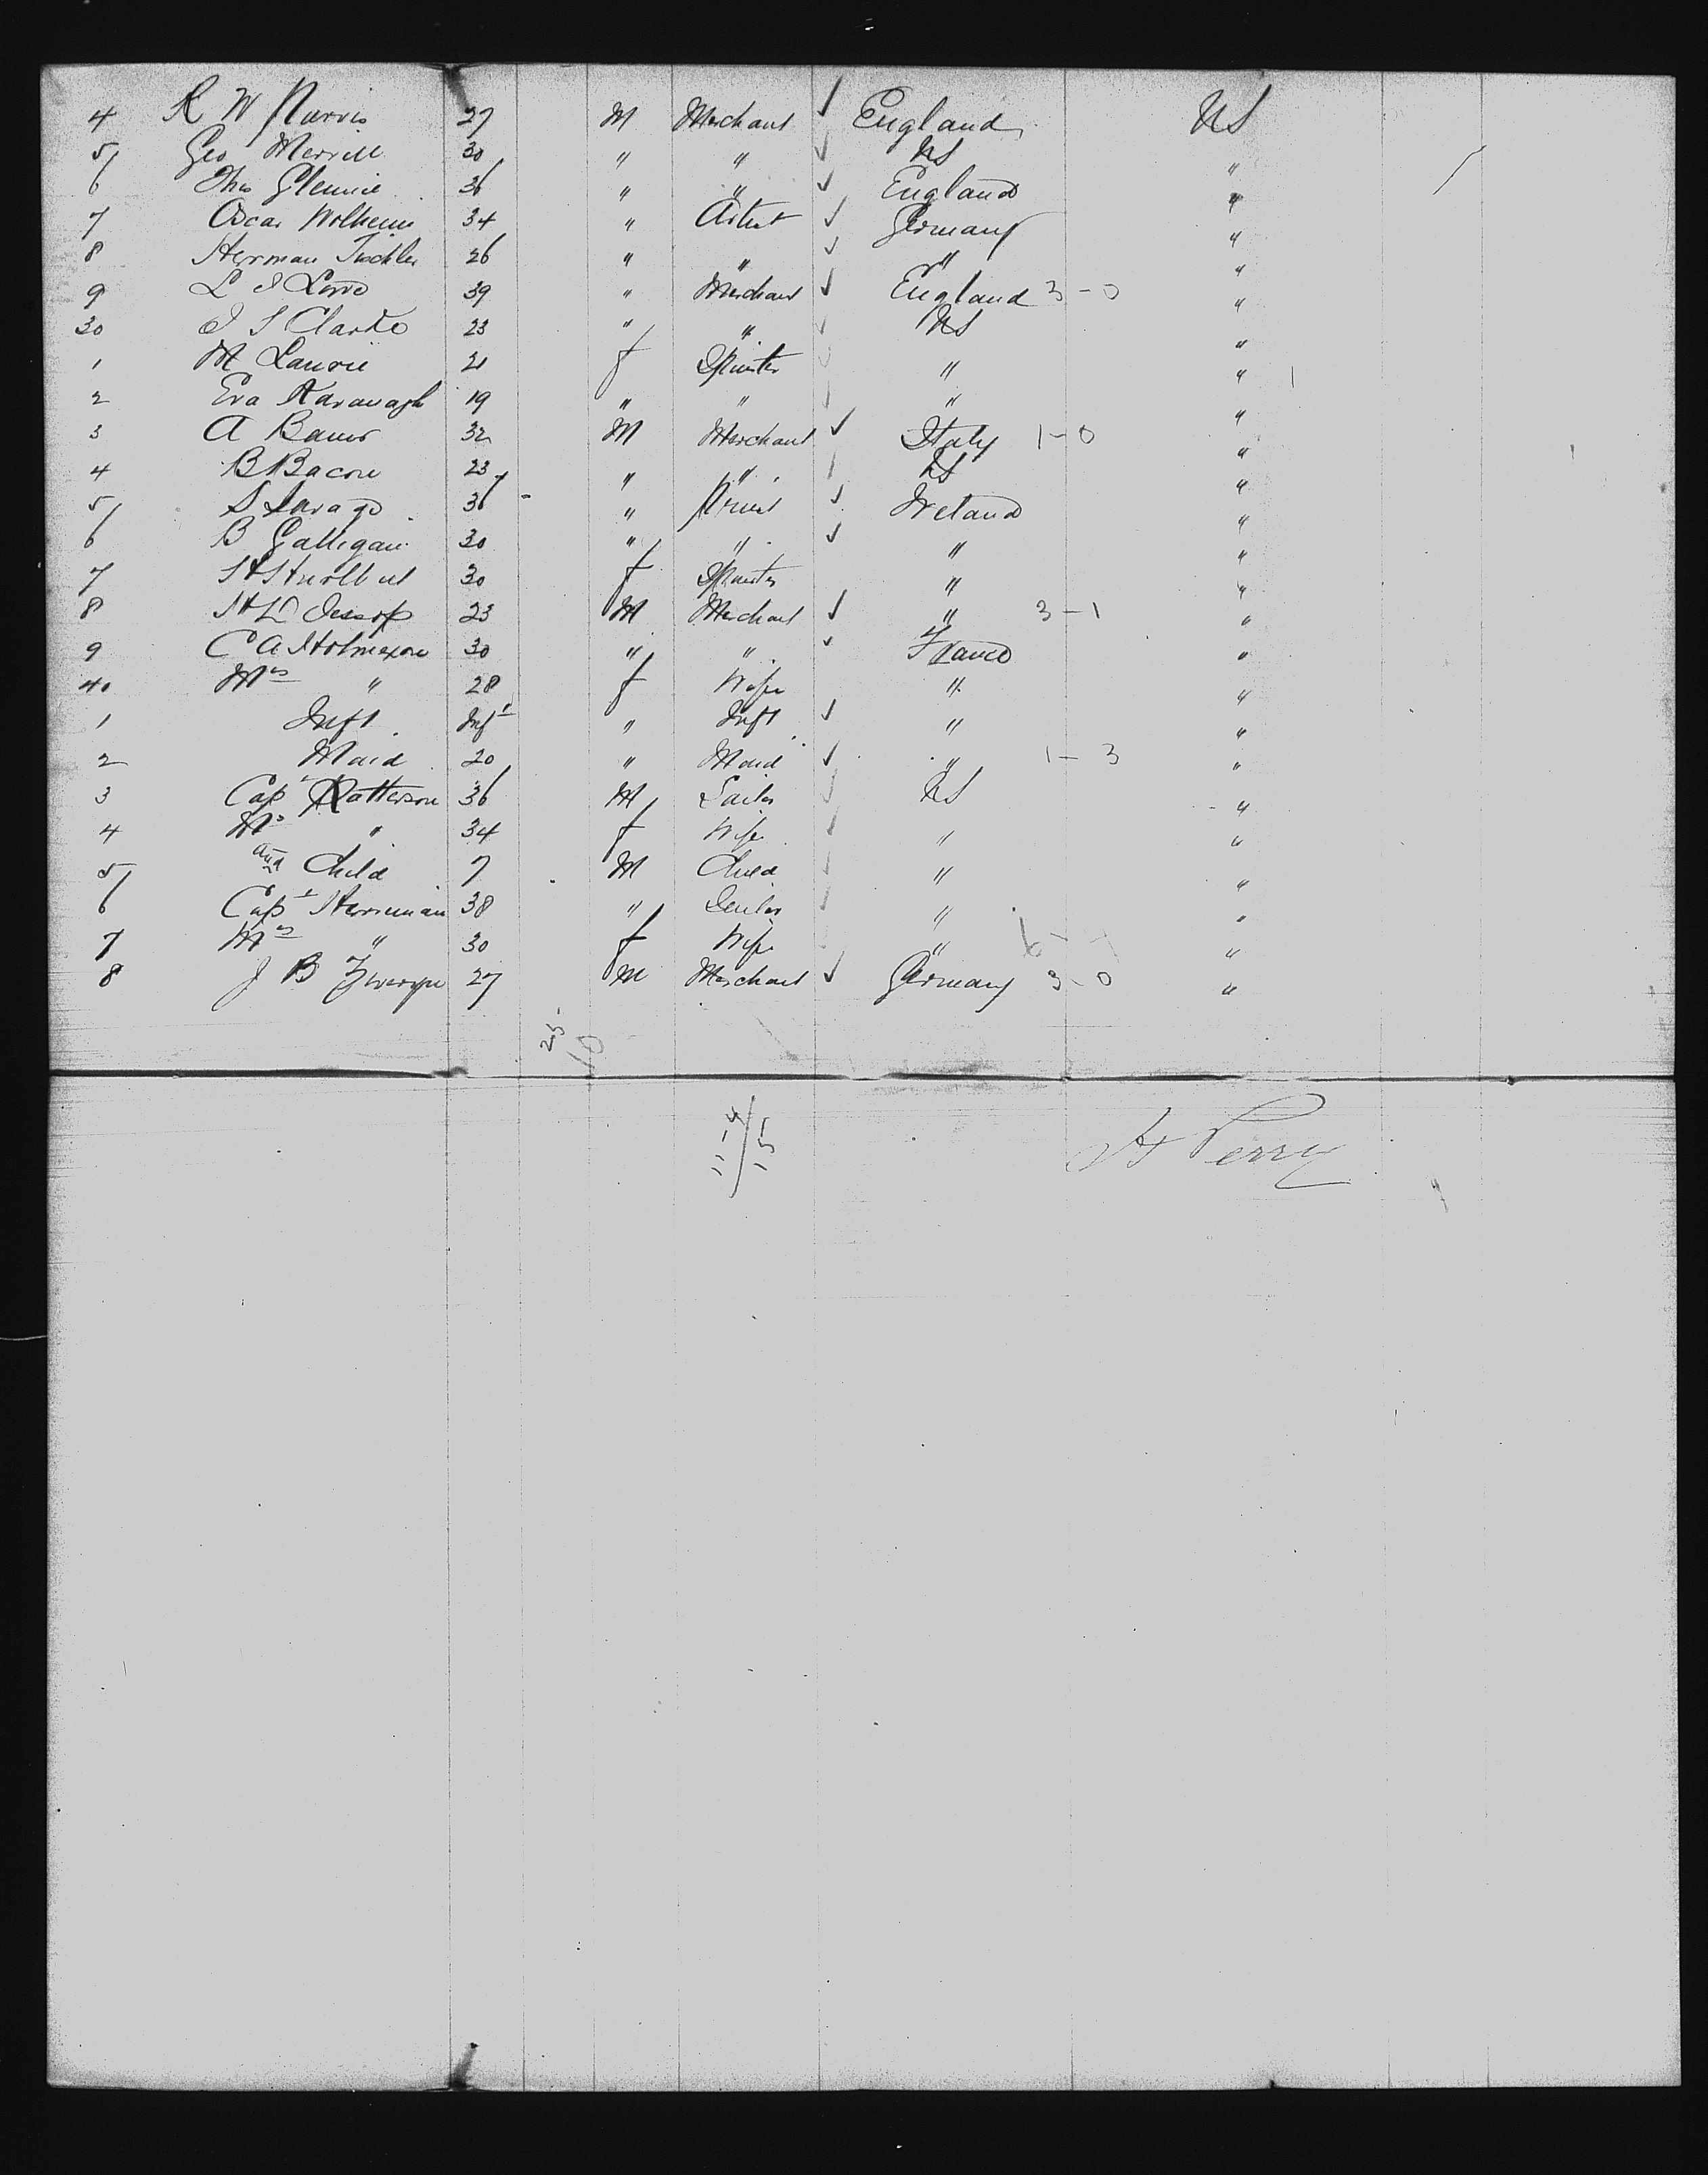 4 R W Purvis 27 M Merchant ✓ England US
5 Geo Merrill 30 " " ✓ US "
6 Thos Glennie 36 " " ✓ England "
7 Oscar Wolheim 34 " Artist ✓ Germany "
8 Herman Tuchler 26 " " ✓ " "
9 L J Love 39 " Merchant ✓ England 3-0 "
30 J S Clarke 23 " " ✓ US "
1 M Laurie 21 f Spinster ✓ " "
2 Eva Kavanagh 19 " " "  "
3 A Bauer 32 M Merchant ✓ Italy 1-0 "
4 B Bacon 23 " " US "
5 S Savage 36 " Priest ✓ Ireland "
6 B Galligan 30 " " ✓ " "
7 30 f Spinster " "
8 H L Jessop 23 M Merchant ✓ " 3-1 "
9 C A 30 " " ✓ France "
40 Mrs " 28 f Wife " "
1 Inft Inft " Inft ✓ " "
2 Maid 20 " Maid ✓ " 1-3 "
3 Capt Patterson 36 M Sailor ✓ US "
4 Mrs " 34 f Wife ✓ " "
5 and Child 7 M Child " "
6 Capt Herriman 38 " " "
7 Mrs " 30 f Wife " "
8 J B 27 M Merchant ✓ Germany 3-0 "
25
10
11-4/15
H Perry